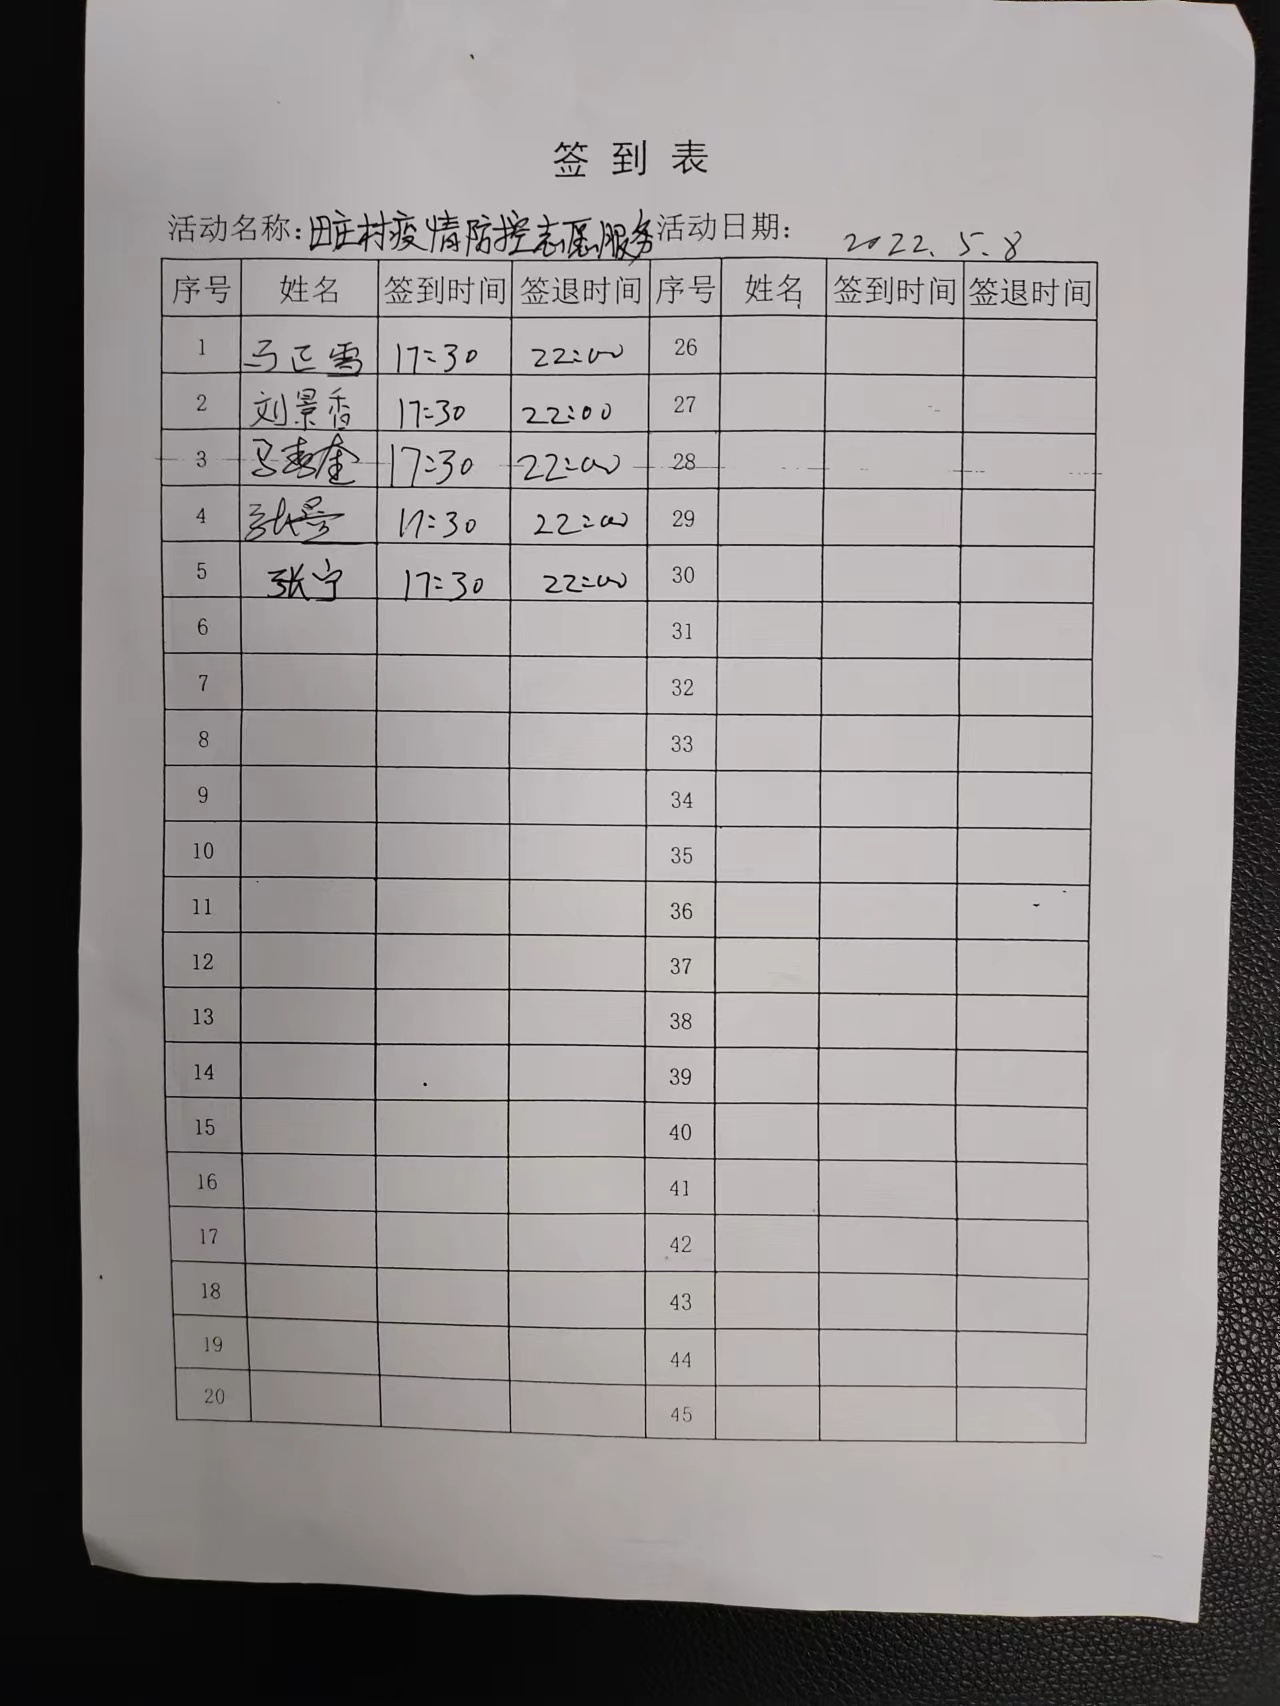 签到表
活动名称:田庄村疫情防控志愿服务 活动日期: 2022.5.8
序号 姓名 签到时间 签退时间 序号 姓名 签到时间 签退时间
1 马正雪 17:30 22:00 26
2 刘景香 17:30 22:00 27
3 17:30 22:00 28
4 17:30 22:00 29
5 张宁 17:30 22:00 30
6 31
7 32
8 33
9 34
10 35
11 36
12 37
13 38
14 39
15 40
16 41
17 42
18 43
19 44
20 45